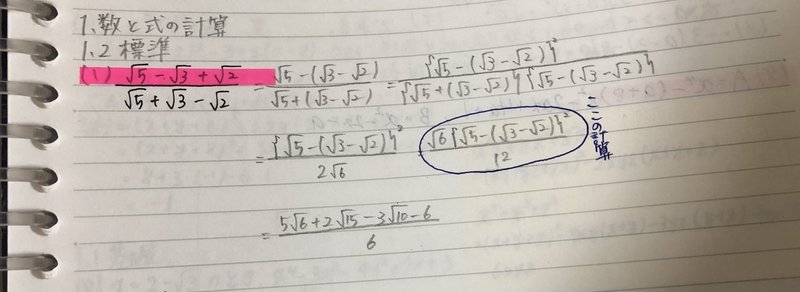 1.数と式の計算
1.2 標準
(1) (√5-√3+√2)/(√5+√3-√2) = (√5-(√3-√2))/(√5+(√3-√2)) = {√5-(√3-√2)}²/{√5+(√3-√2)}{√5-(√3-√2)}
= {√5-(√3-√2)}²/2√6 = √6{√5-(√3-√2)}²/12 ここの計算
= (5√6+2√15-3√10-6)/6